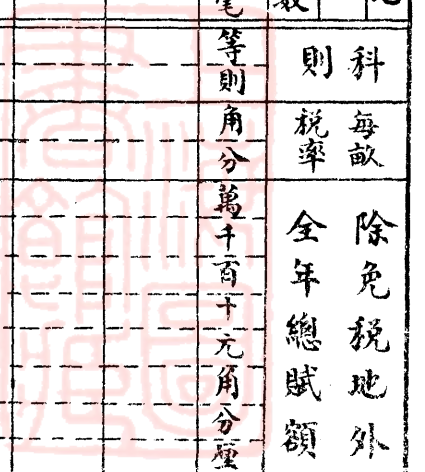 科則
每畝税率
除免税地外
全年總賦額
毫
等則
角分
萬千百十元角分厘